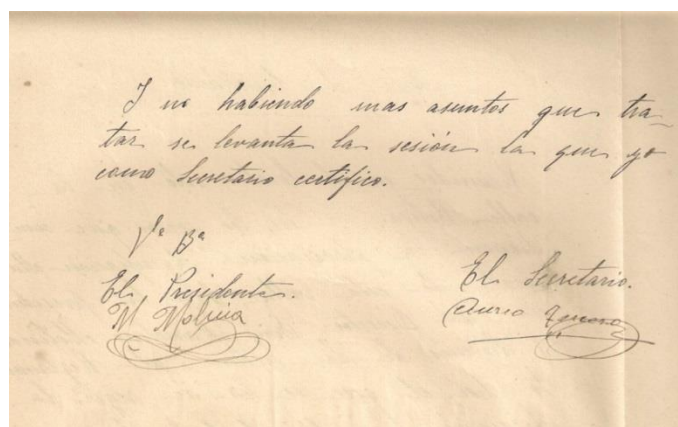 Y no habiendo mas asuntos que tra-
tar se levanta la sesión la que yo
como Secretario certifico.
Vº Bº
El Presidente.
El Secretario.
M Molina
Aureo